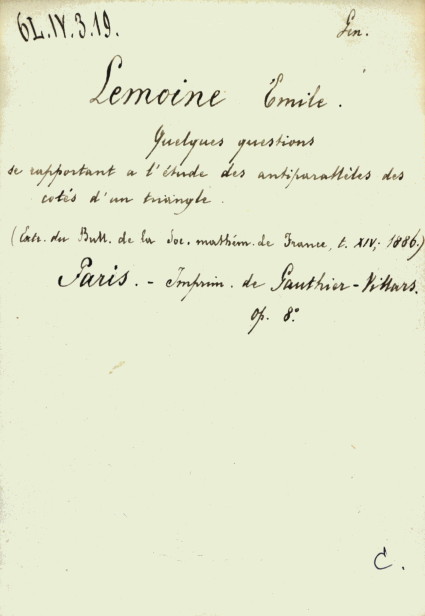 6L.IV.3.19. Gen.
Lemoine Émile.
Quelques questions
se rapportant a l'étude des antiparallèles des
cotés d'un triangle.
(Extr. du Bull. de la Soc. mathém. de France, t. XIV, 1886.)
Paris. - Imprim. de Gauthier-Villars.
op. 8°
C.